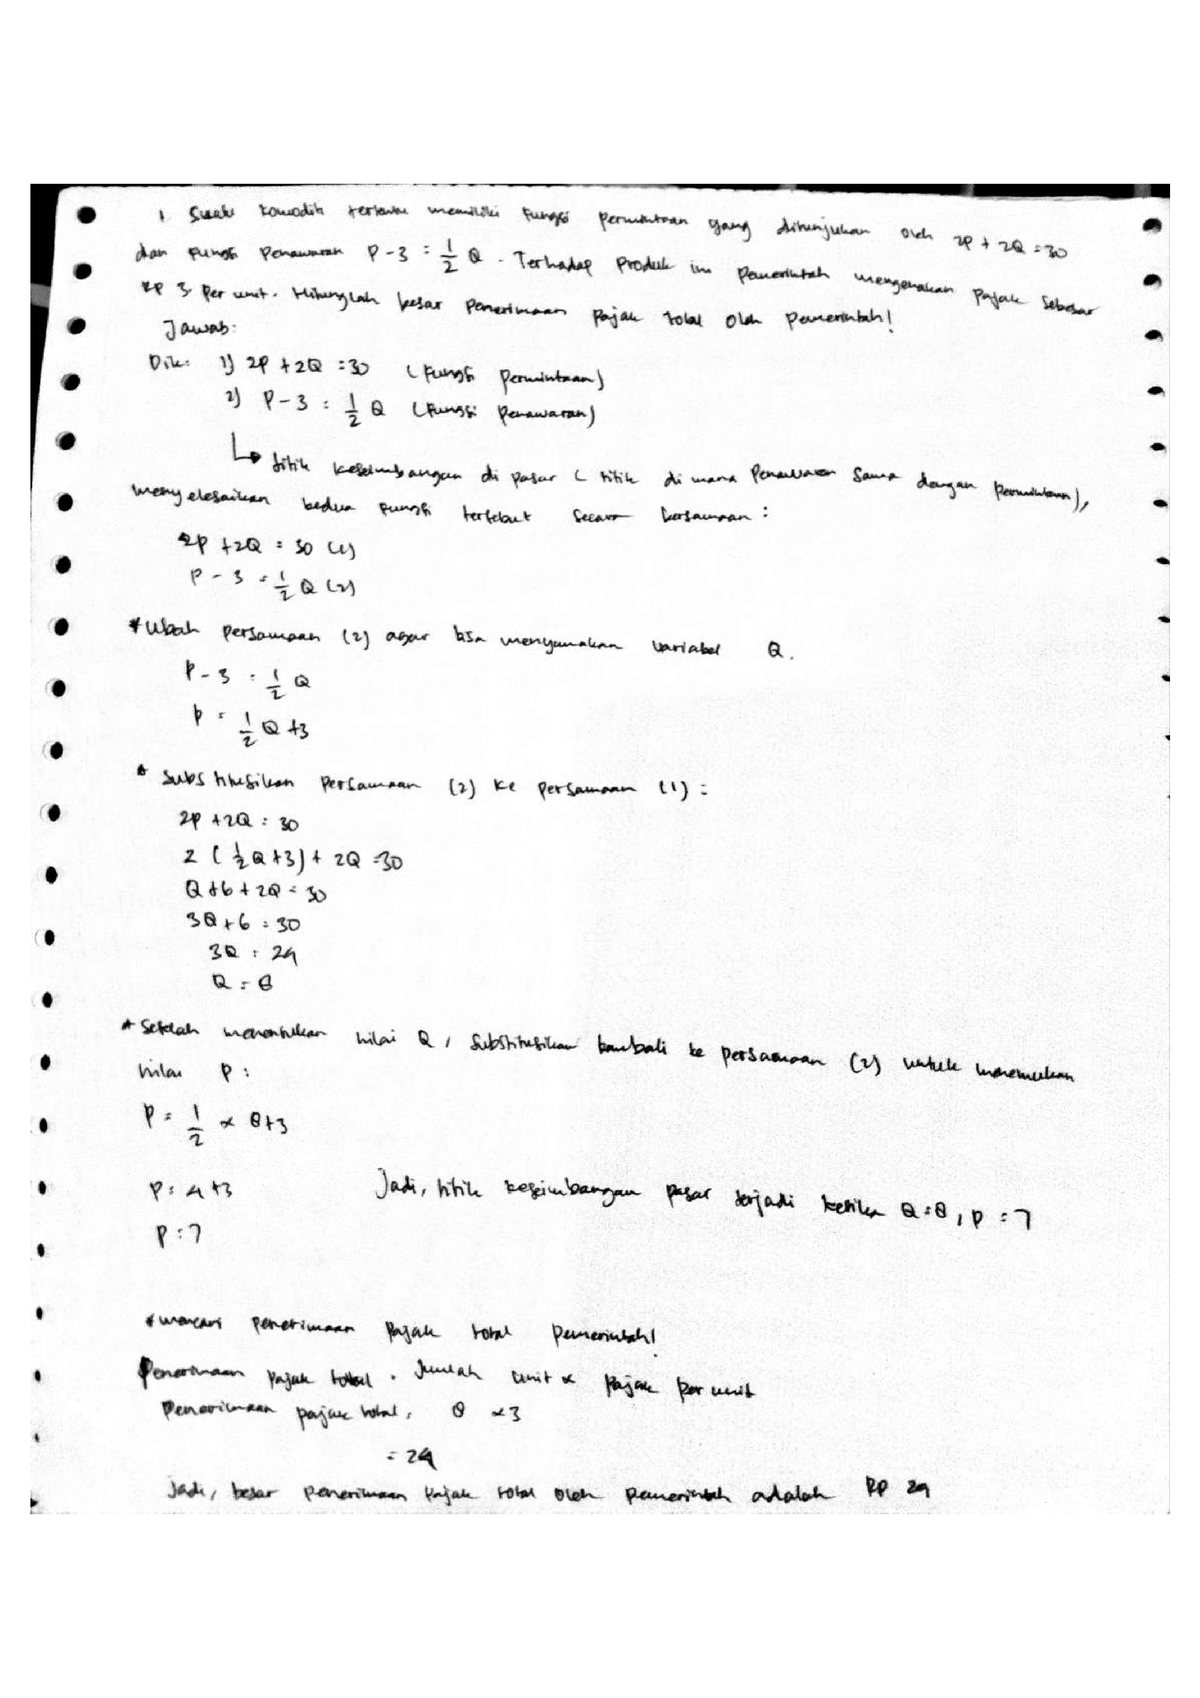 1. Suatu komoditi tertentu memiliki fungsi permintaan yang ditunjukan oleh 2P + 2Q = 30
dan fungsi penawaran P - 3 = 1/2 Q. Terhadap produk ini pemerintah mengenakan pajak sebesar
RP 3 per unit. Hitunglah besar penerimaan pajak total oleh pemerintah!
Jawab:
Dik: 1) 2P + 2Q = 30 (fungsi permintaan)
2) P - 3 = 1/2 Q (fungsi penawaran)
↳ titik keseimbangan di pasar (titik di mana penawaran sama dengan permintaan),
menyelesaikan kedua fungsi tersebut secara bersamaan:
2P + 2Q = 30 (1)
P - 3 = 1/2 Q (2)
* Ubah persamaan (2) agar bisa menyamakan variabel Q.
P - 3 = 1/2 Q
P = 1/2 Q + 3
* Substitusikan persamaan (2) ke persamaan (1) =
2P + 2Q = 30
2 (1/2 Q + 3) + 2Q = 30
Q + 6 + 2Q = 30
3Q + 6 = 30
3Q = 24
Q = 8
* Setelah menentukan nilai Q, substitusikan kembali ke persamaan (2) untuk menemukan
nilai P:
P = 1/2 × 8 + 3
P = 4 + 3 Jadi, titik keseimbangan pasar terjadi ketika Q = 8, P = 7
P = 7
* mencari penerimaan pajak total pemerintah!
Penerimaan pajak total = Jumlah unit × pajak per unit
Penerimaan pajak total = 8 × 3
= 24
Jadi, besar penerimaan pajak total oleh pemerintah adalah RP 24